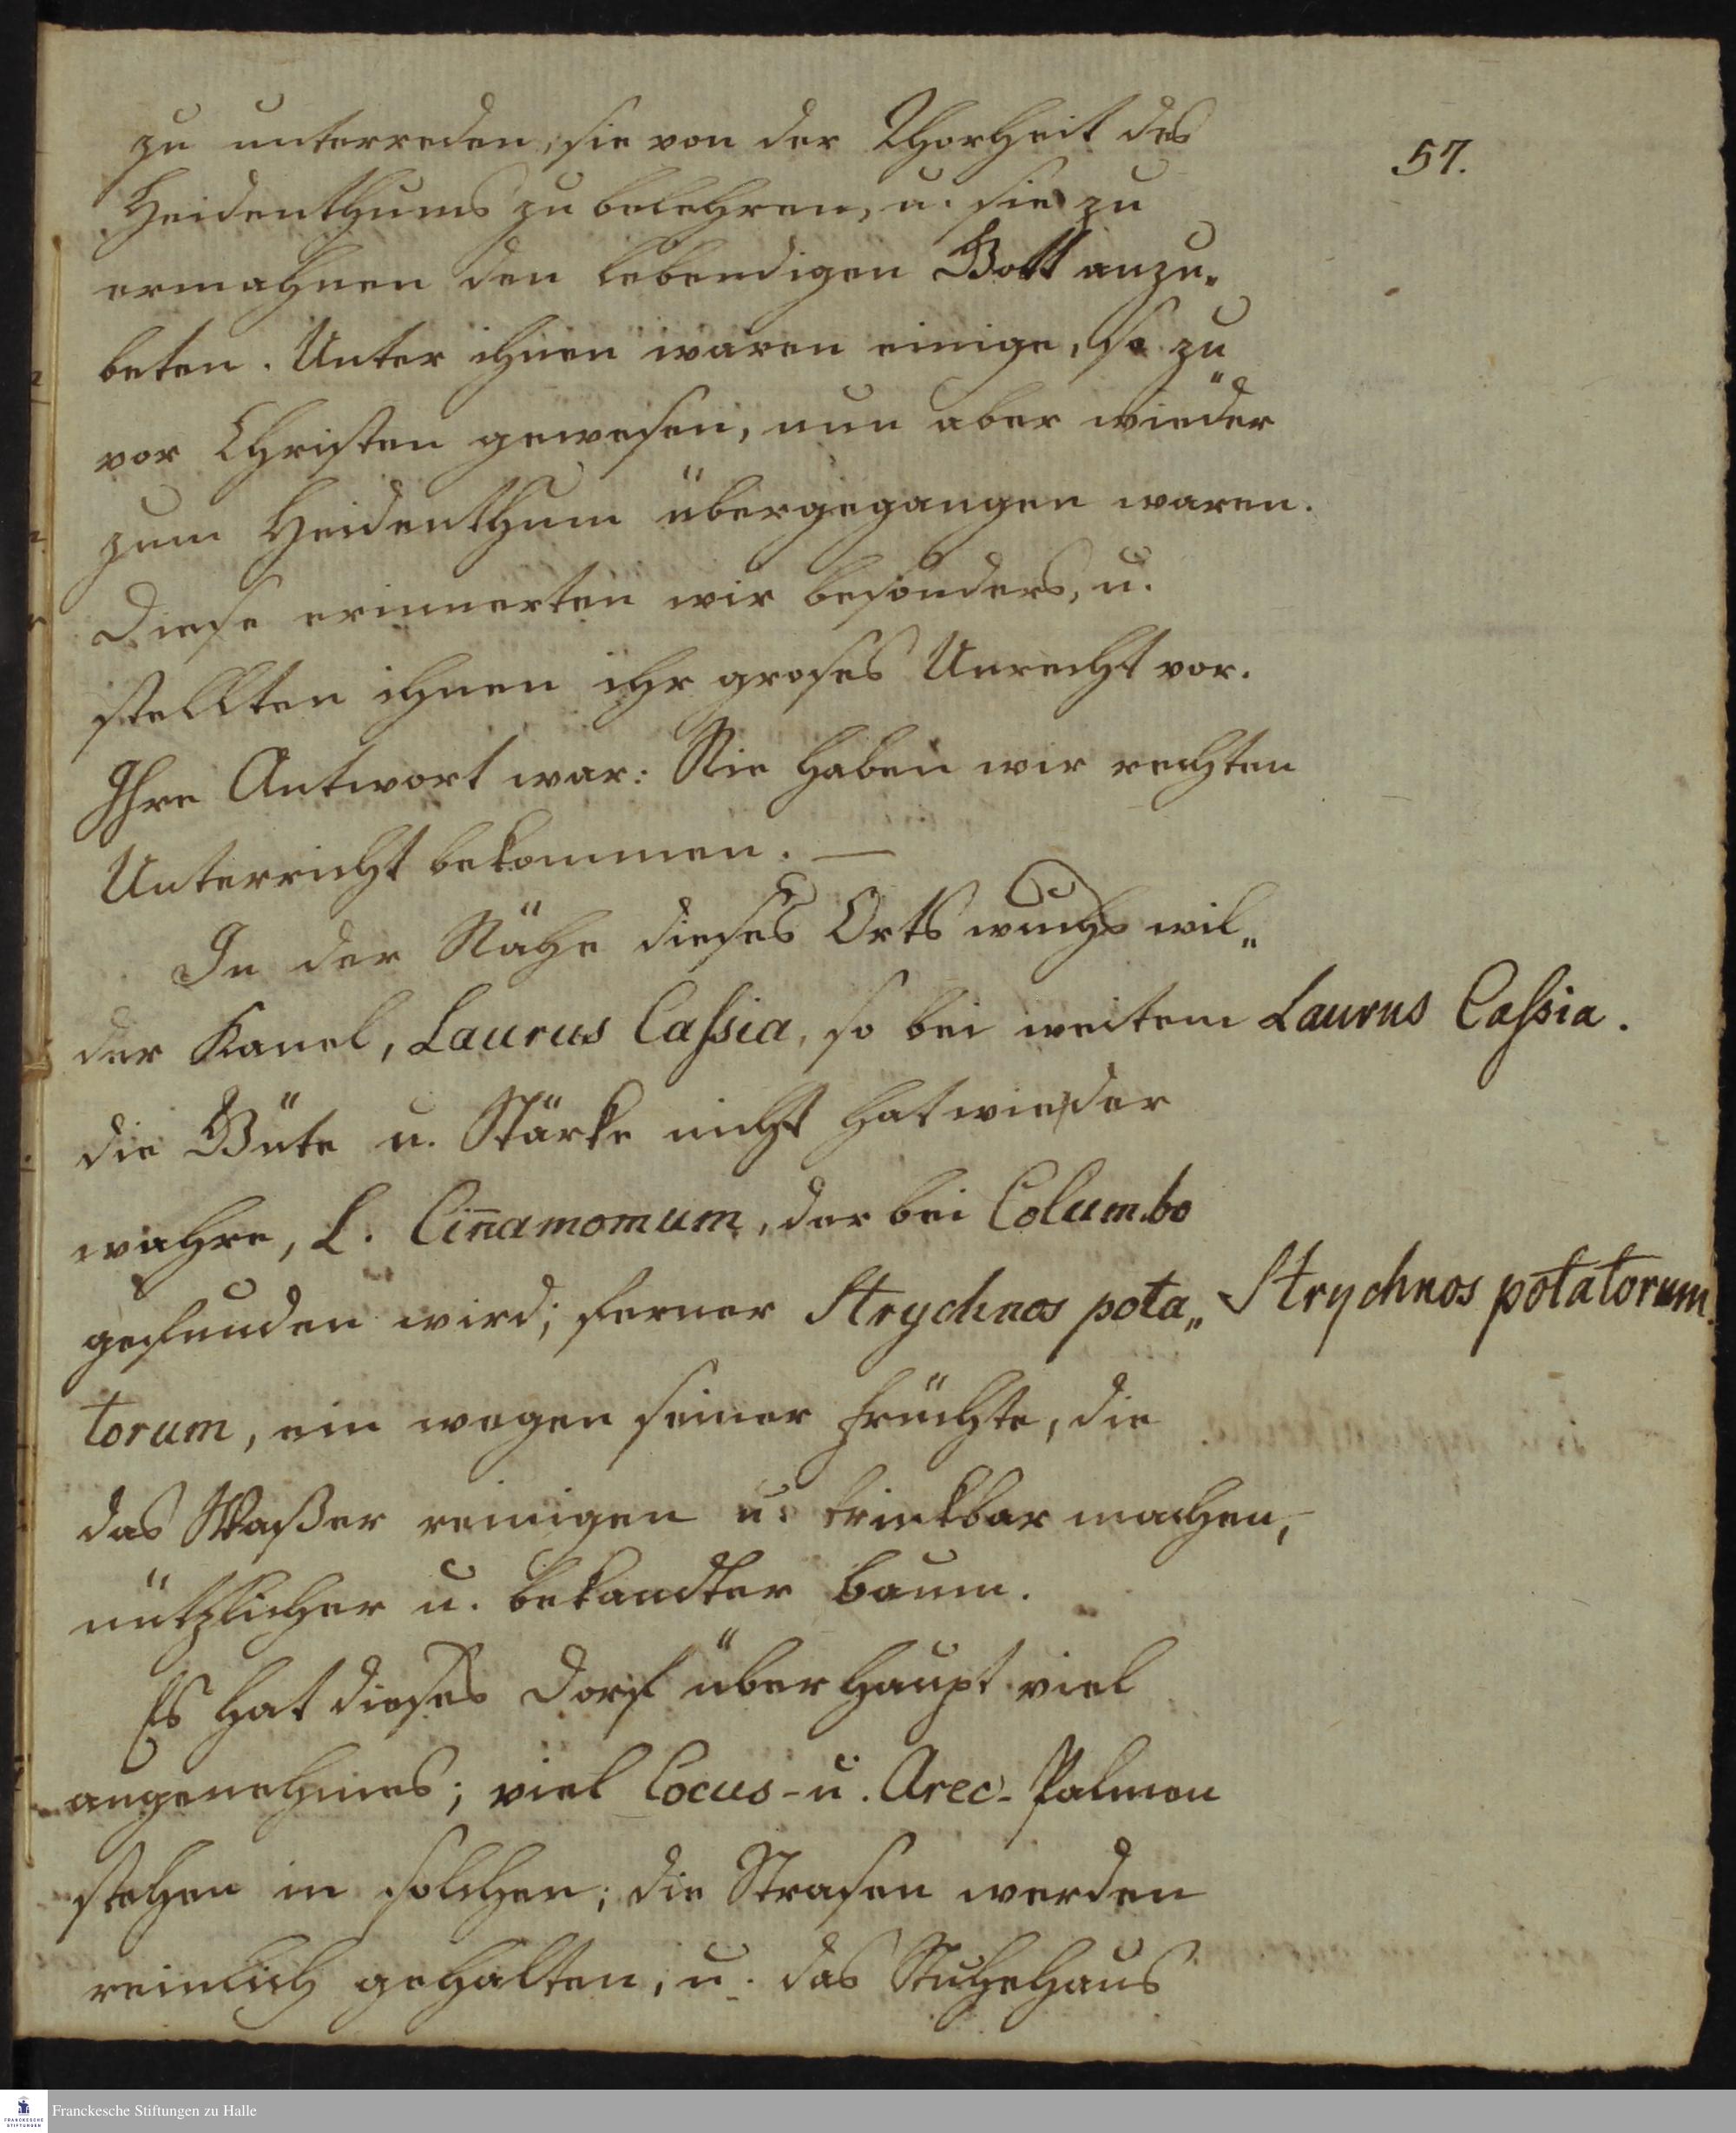 57.
zu unterreden, sie von der Thorheit des
Heidenthums zu belehren, u. sie zu
ermahnen den lebendigen Gott anzu„
beten. Unter ihnen waren einige, so zu„
vor Christen gewesen, nun aber wieder
zum Heidenthum übergegangen waren.
Diese erinnerten wir besonders, u.
stellten ihnen ihr groses Unrecht vor.
Ihre Antwort war: Nie haben wir rechten
Unterricht bekommen. —
In der Nähe dieses Orts wuchs wil„
der Kanel, Laurus Cassia, so bei weitem
Laurus Cassia.
die Güte u. Stärke nicht hat wie der
wahre, L. Cin̄amomum, der bei Columbo
gefunden wird; ferner Strychnos pota„
Strychnos potatorum.
torum, ein wegen seiner Früchte, die
das Waßer reinigen u. trinkbar machen,
nützlicher u. bekandter Baum.
Es hat dieses Dorf überhaupt viel
angenehmes; viel Cocus- u. Arec-Palmen
stehen in solchen; die Strasen werden
reinlich gehalten, u. das Ruhehaus
Franckesche Stiftungen zu Halle